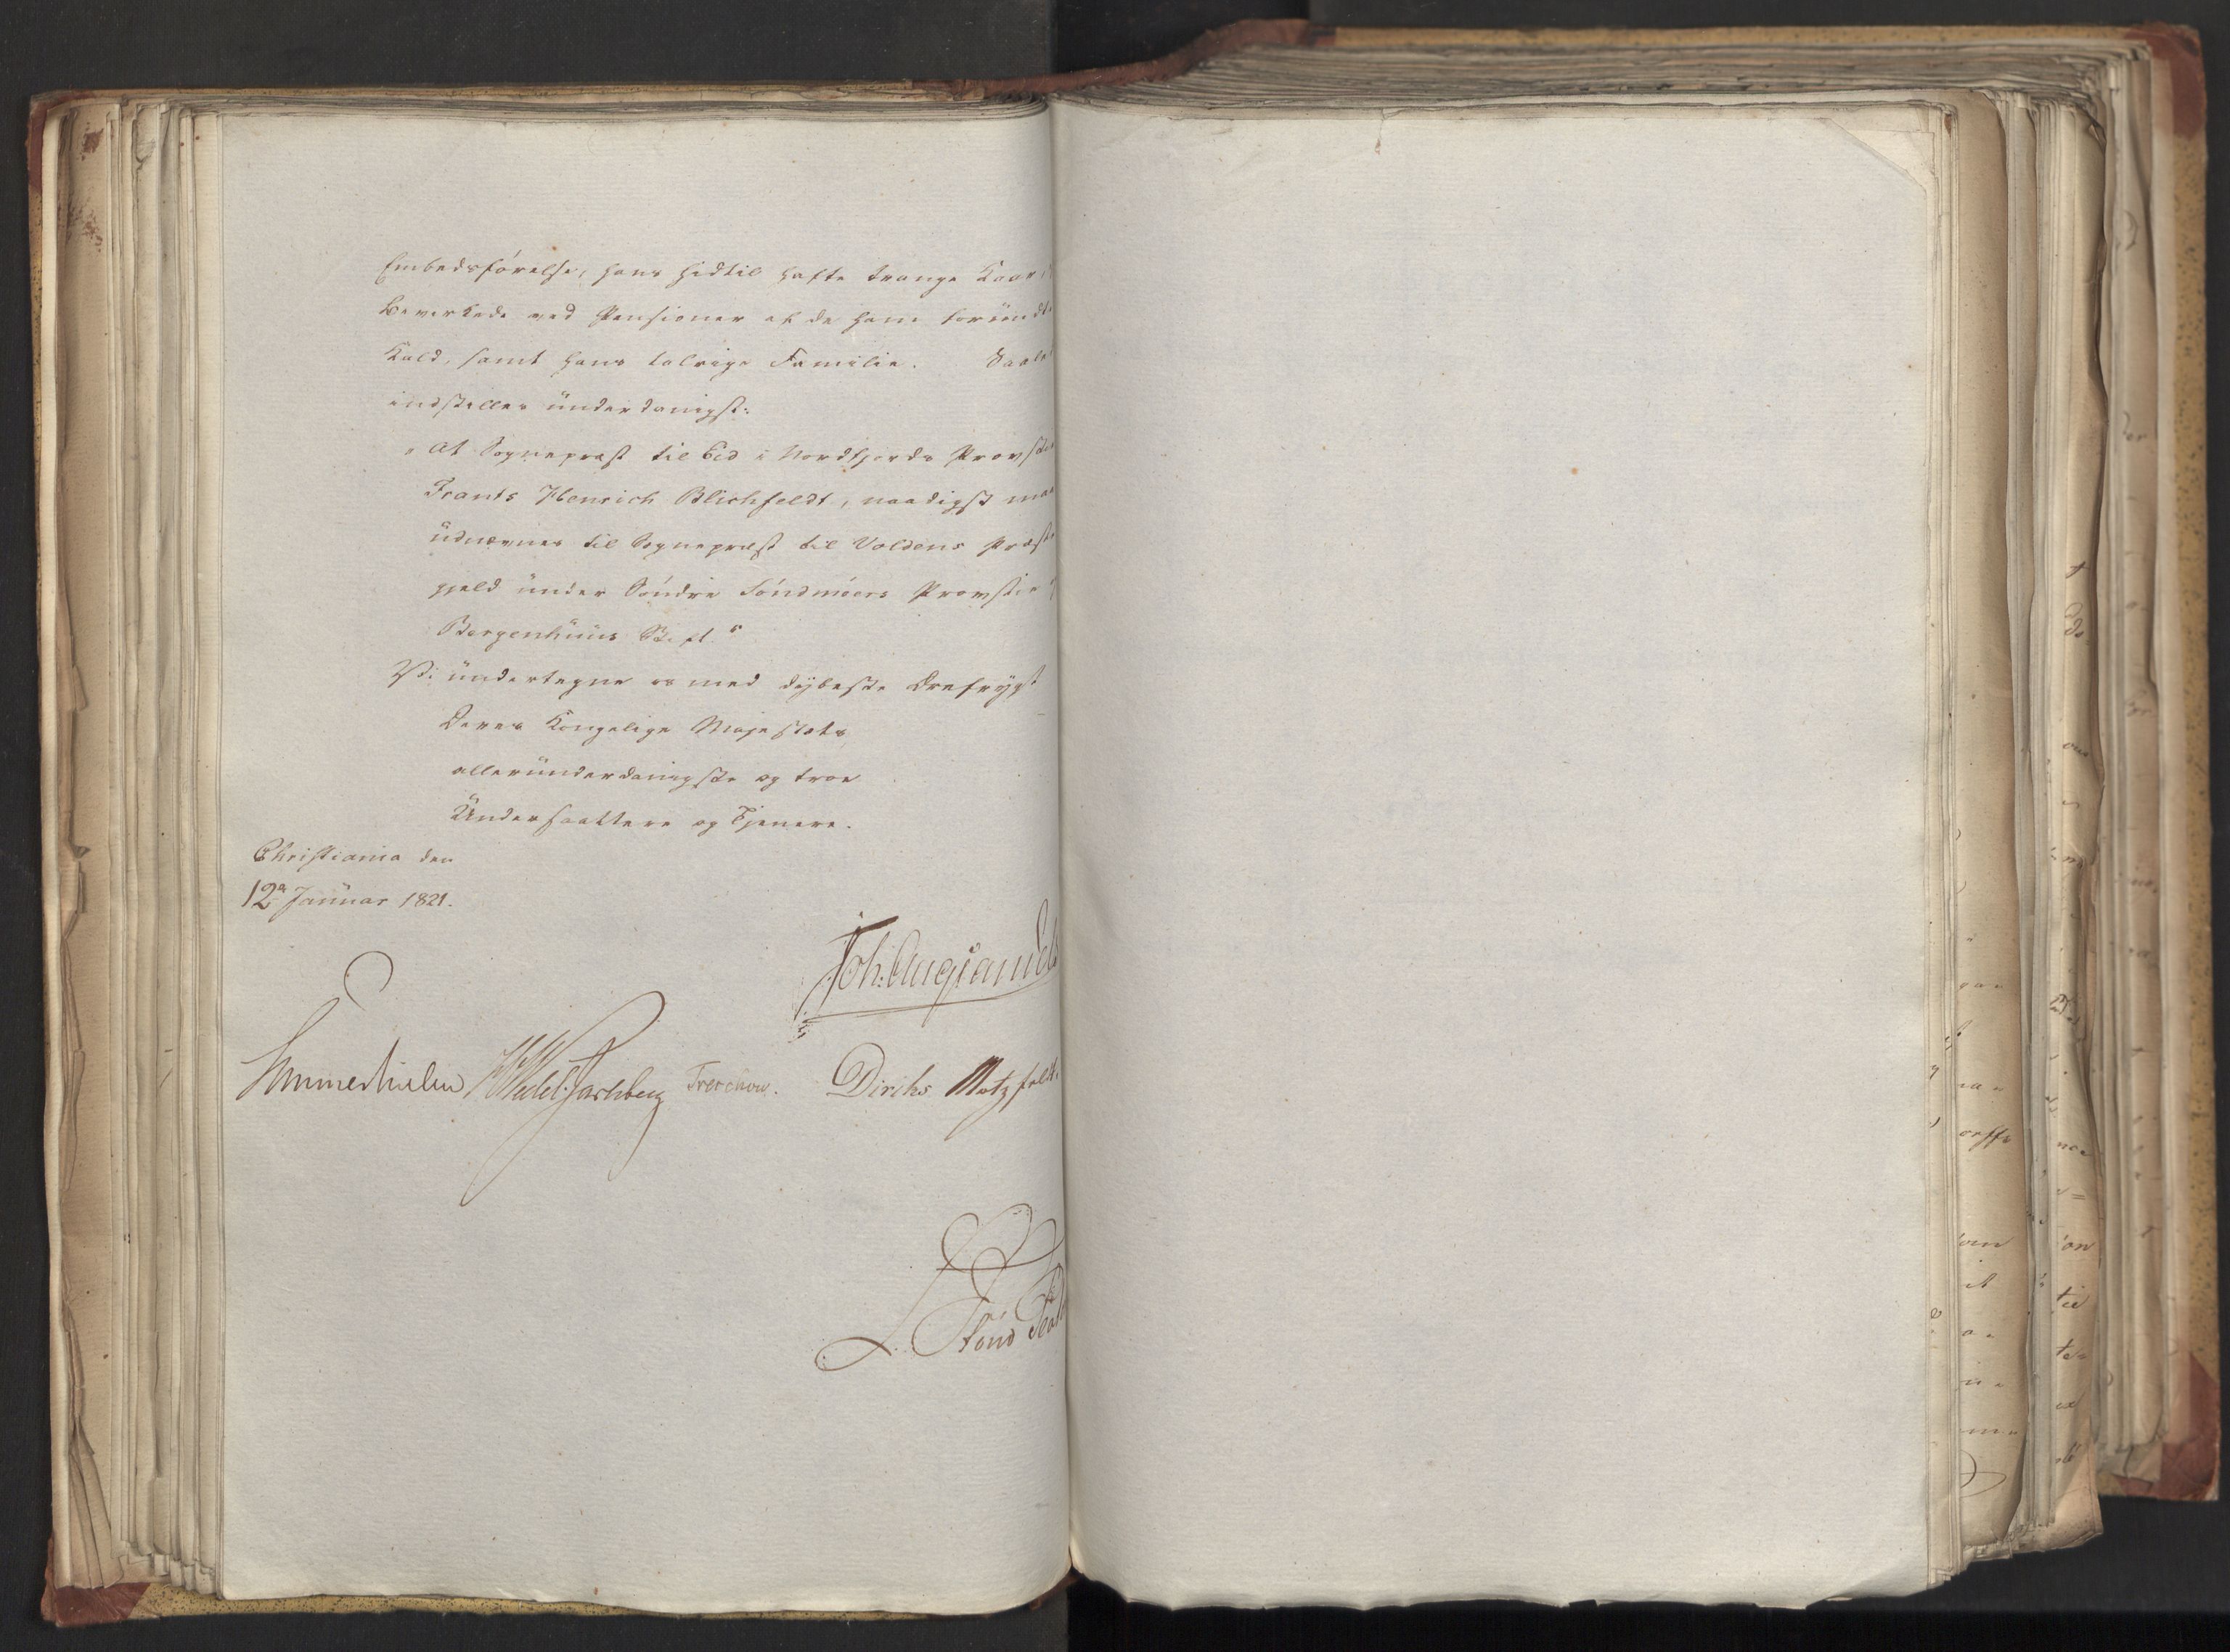 Embedsförelse, hans hidtil hafte trange Kaar,
Bevirkede ved Pensioner af de ham forundte
Kald, samt hans talrige Familie. Saaled
indstilles ünderdanigst:
"At Sognepræst til Eid i Nordfjords Provstie
Frants Henrich Blichfeldt, naadigst maa
üdnævnes til Sognepræst til Voldens Præste
gjeld ünder Söndre Söndmöers Provstie i
Bergenhüüs Stift."
Vi ündertegne os med dÿbeste Ærefrÿgt
Deres Kongelige Majestæts
alleründerdanigste og troe
Ündersaattere og Tjenere.
Christiania den
12n Janüar 1821.
Joh: Aug: Sandels
Sommerhielm HWedel-Jarlsberg Treschow. Diriks Motzfeldt.